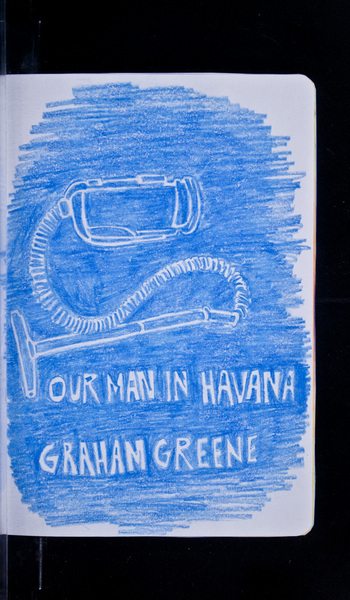 OUR MAN IN HAVANA
GRAHAM GREENE